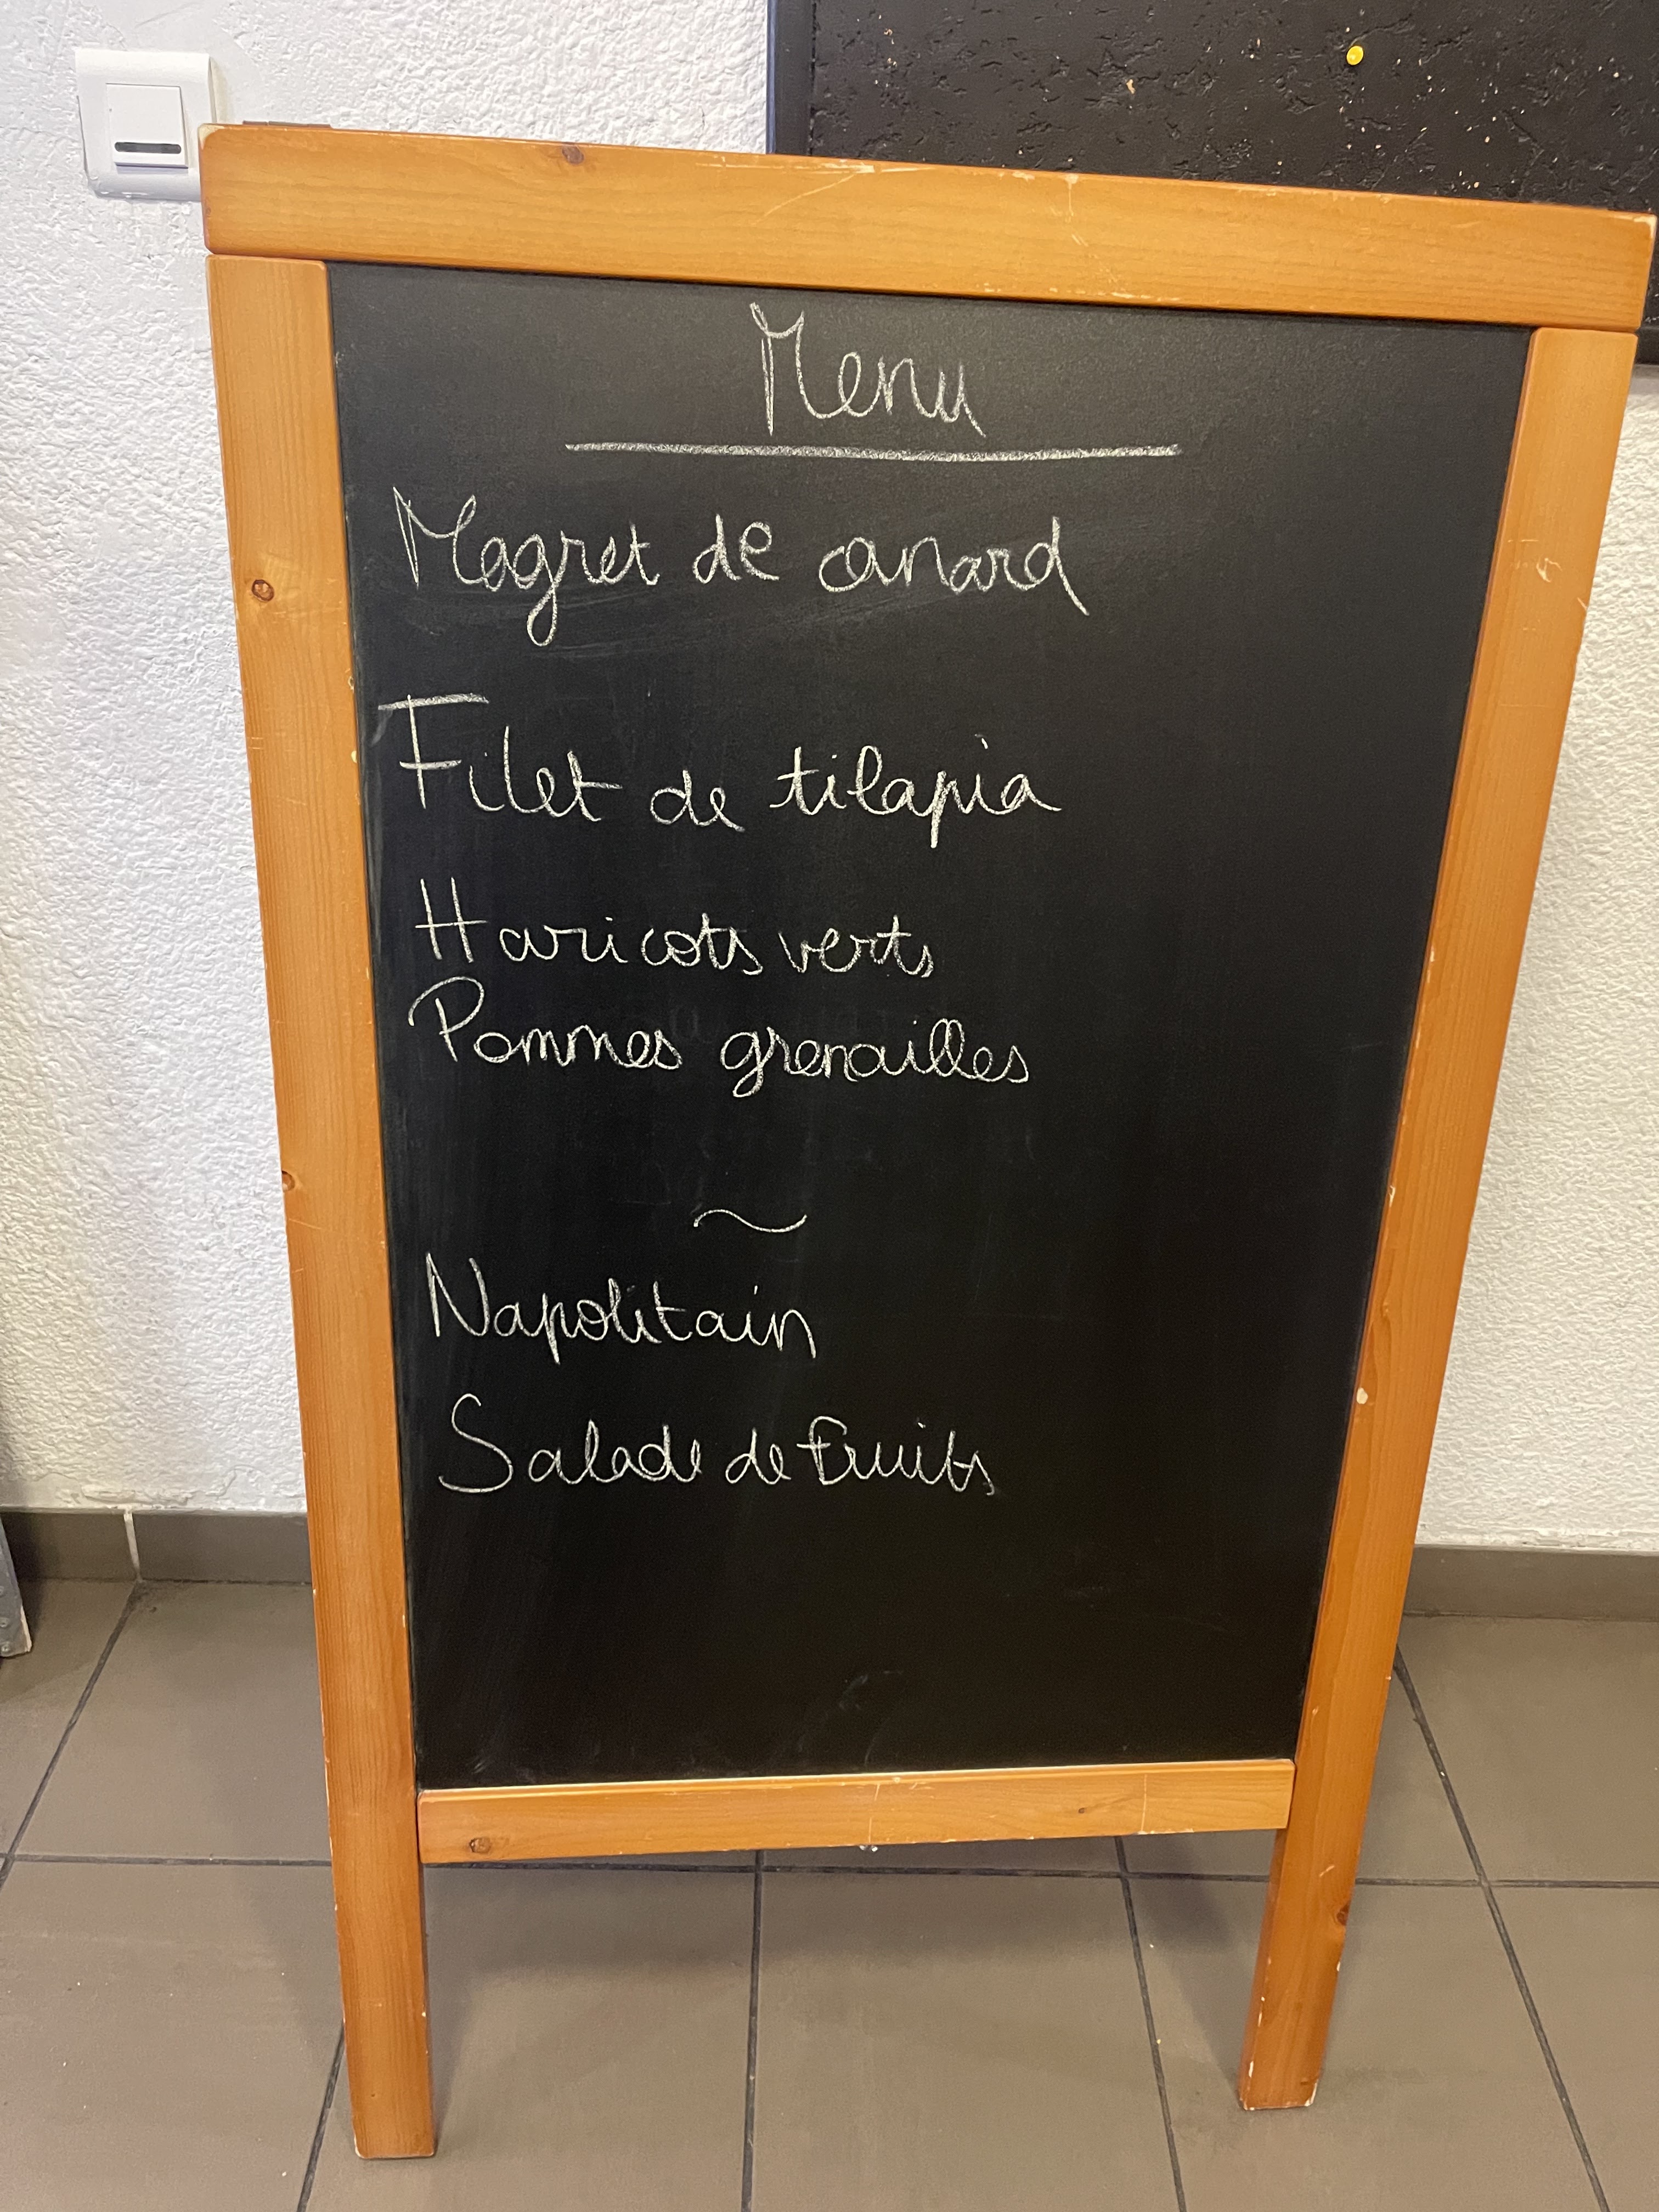 Menu
Magret de canard
Filet de tilapia
Haricots verts
Pommes grenailles
~
Napolitain
Salade de fruits